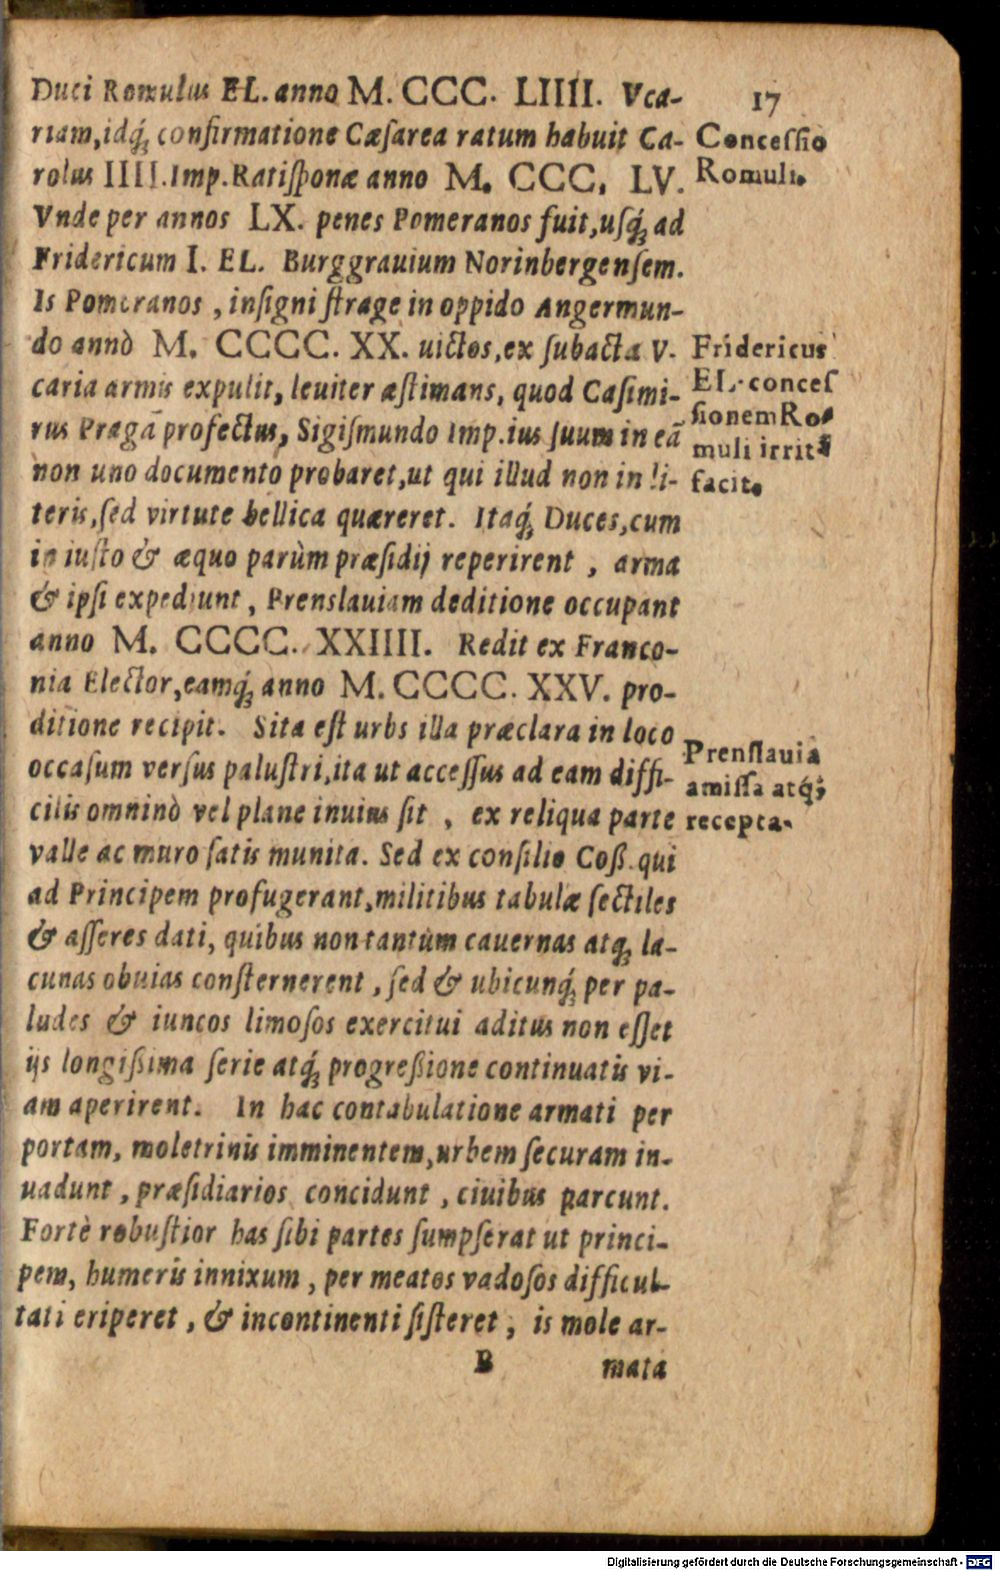 17
Duci Romulus EL. anno M. CCC. LIIII. Vca-
riam, idq́; confirmatione Cæſarea ratum habuit Ca-
rolus IIII. Imp. Ratiſponæ anno M. CCC. LV.
Vnde per annos LX. penes Pomeranos fuit, uſq́; ad
Fridericum I. EL. Burggrauium Norinbergenſem.
Is Pomeranos, inſigni ſtrage in oppido Angermun-
do annò M. CCCC. XX. uictos, ex ſubacta V-
caria armis expulit, leuiter æſtimans, quod Caſimi-
rus Pragā profectus, Sigiſmundo Imp. ius ſuum in eā
non uno documento probaret, ut qui illud non in li-
teris, ſed virtute bellica quæreret. Itaq́; Duces, cum
in iuſto & æquo parùm præſidij reperirent, arma
& ipſi expediunt, Prenslauiam deditione occupant
anno M. CCCC. XXIIII. Redit ex Franco-
nia Elector, eamq́; anno M. CCCC. XXV. pro-
ditione recipit. Sita eſt urbs illa præclara in loco
occaſum verſus paluſtri, ita ut acceſſus ad eam diffi-
cilis omninò vel plane inuius ſit, ex reliqua parte
valle ac muro ſatis munita. Sed ex conſilio Coß. qui
ad Principem profugerant, militibus tabulæ ſectiles
& aſſeres dati, quibus non tantùm cauernas atq; la-
cunas obuias conſternerent, ſed & ubicunq́; per pa-
ludes & iuncos limoſos exercitui aditus non eſſet
ijs longißima ſerie atq́; progreßione continuatis vi-
am aperirent. In hac contabulatione armati per
portam, moletrinis imminentem, urbem ſecuram in-
uadunt, præſidiarios concidunt, ciuibus parcunt.
Fortè robuſtior has ſibi partes ſumpſerat ut princi-
pem, humeris innixum, per meatos vadoſos difficul-
tati eriperet, & incontinenti ſiſteret, is mole ar-
B mata
Conceſſio
Romuli.
Fridericus
EL. conceſ
ſionem Ro-
muli irritā
facit.
Prenſlauia
amiſſa atq́;
recepta.
Digitalisierung gefördert durch die Deutsche Forschungsgemeinschaft - DFG